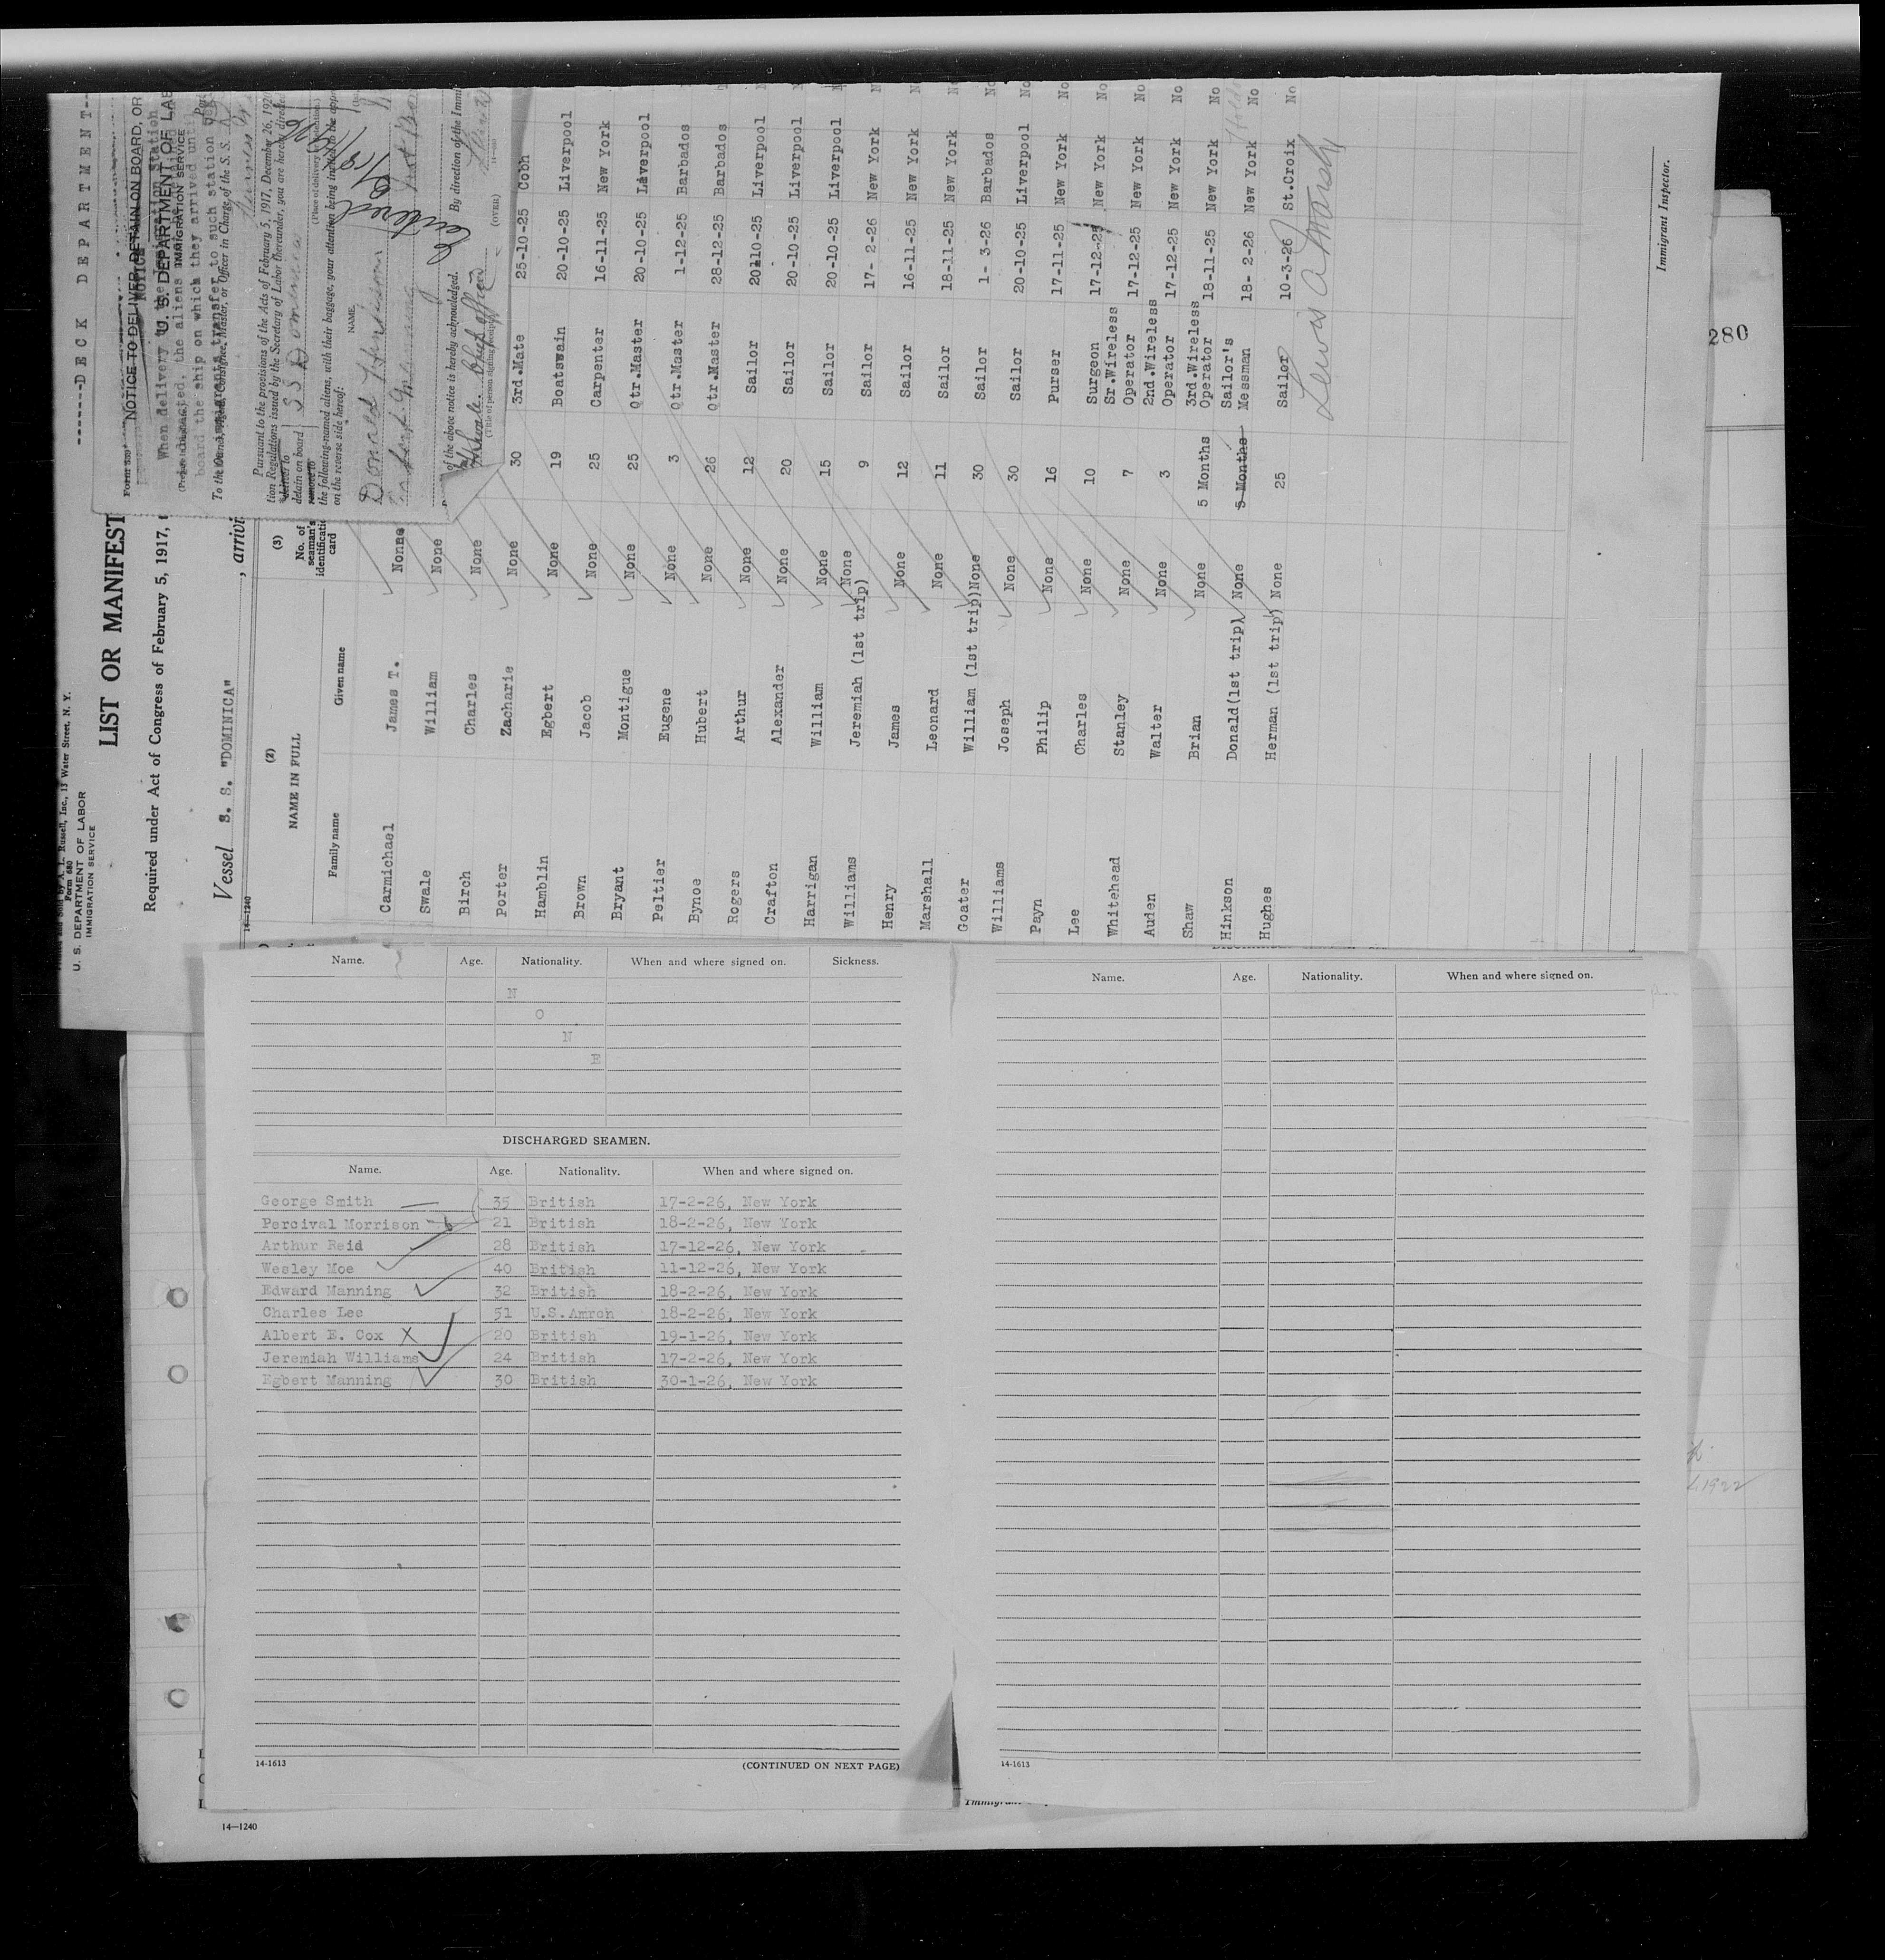 Form 680
U. S. DEPARTMENT OF LABOR
IMMIGRATION SERVICE
LIST OR MANIFEST
Required under Act of Congress of February 5, 1917,
Vessel S. S. "DOMINICA" , arrivi
14—1240
(2) (3)
NAME IN FULL No. of seaman's identification card
Family name Given name
------DECK DEPARTMENT--
NOTICE TO DELIVER, DETAIN ON BOARD, OR
NOTICE
U. S. DEPARTMENT OF LAB
IMMIGRATION SERVICE
When delivery to the immigration station
is directed, the aliens
board the ship on which they arrived until
transfer to such station
To the Owner, Agent, Consignee, Master, or Officer in Charge of the S. S.
Pursuant to the provisions of the Acts of February 5, 1917, December 26, 1920
tion Regulations issued by the Secretary of Labor thereunder, you are hereby directed
detain on board S S Dominica
(Place of delivery
the following-named aliens, with their baggage, your attention being invited to the appr
on the reverse side hereof:
NAME
Entered
of the above notice is hereby acknowledged. By direction of the Immi
Chief officer
(Title of person signing
(OVER)
Carmichael James T. None
Swale William None
Birch Charles None
Porter Zacharie None 30 3rd.Mate 25-10-25 Cobh
Hamblin Egbert None 19 Boatswain 20-10-25 Liverpool
Brown Jacob None 25 Carpenter 16-11-25 New York
Bryant Montigue None 25 Qtr.Master 20-10-25 Liverpool
Peltier Eugene None 3 Qtr.Master 1-12-25 Barbados
Bynoe Hubert None 26 Qtr.Master 28-12-25 Barbados
Rogers Arthur None 12 Sailor 20-10-25 Liverpool
Crafton Alexander None 20 Sailor 20-10-25 Liverpool
Harrigan William None 15 Sailor 20-10-25 Liverpool
Williams Jeremiah (1st trip) None 9 Sailor 17- 2-26 New York
Henry James None 12 Sailor 16-11-25 New York No
Marshall Leonard None 11 Sailor 18-11-25 New York No
Goater William (1st trip) None 30 Sailor 1- 3-26 Barbados No
Williams Joseph None 30 Sailor 20-10-25 Liverpool No
Payn Philip None 16 Purser 17-11-25 New York No
Lee Charles None 10 Surgeon 17-12-25 New York No
Whitehead Stanley None 7 Sr.Wireless Operator 17-12-25 New York No
Auden Walter None 3 2nd.Wireless Operator 17-12-25 New York No
Shaw Brian None 5 Months 3rd.Wireless Operator 18-11-25 New York No
Hinkson Donald(1st trip) None 5 Months Sailor's Messman 18- 2-26 New York No
Hughes Herman (1st trip) None 25 Sailor 10-3-26 St.Croix No
Lewis A Marsh
Immigrant Inspector.
280
Name. Age. Nationality. When and where signed on. Sickness.
N
O
N
E
DISCHARGED SEAMEN.
Name. Age. Nationality. When and where signed on.
George Smith 35 British 17-2-26, New York
Percival Morrison 21 British 18-2-26, New York
Arthur Reid 28 British 17-12-26, New York
Wesley Moe 40 British 11-12-26, New York
Edward Manning 32 British 18-2-26, New York
Charles Lee 51 U.S.Amrcn 18-2-26, New York
Albert E. Cox X 20 British 19-1-26, New York
Jeremiah Williams 24 British 17-2-26, New York
Egbert Manning 30 British 30-1-26, New York
14-1613 (CONTINUED ON NEXT PAGE)
14—1240
Name. Age. Nationality. When and where signed on.
14-1613
1922